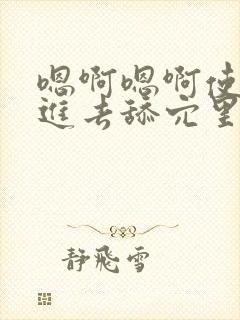 嗯啊嗯啊使
進去舔穴里
静飛雪